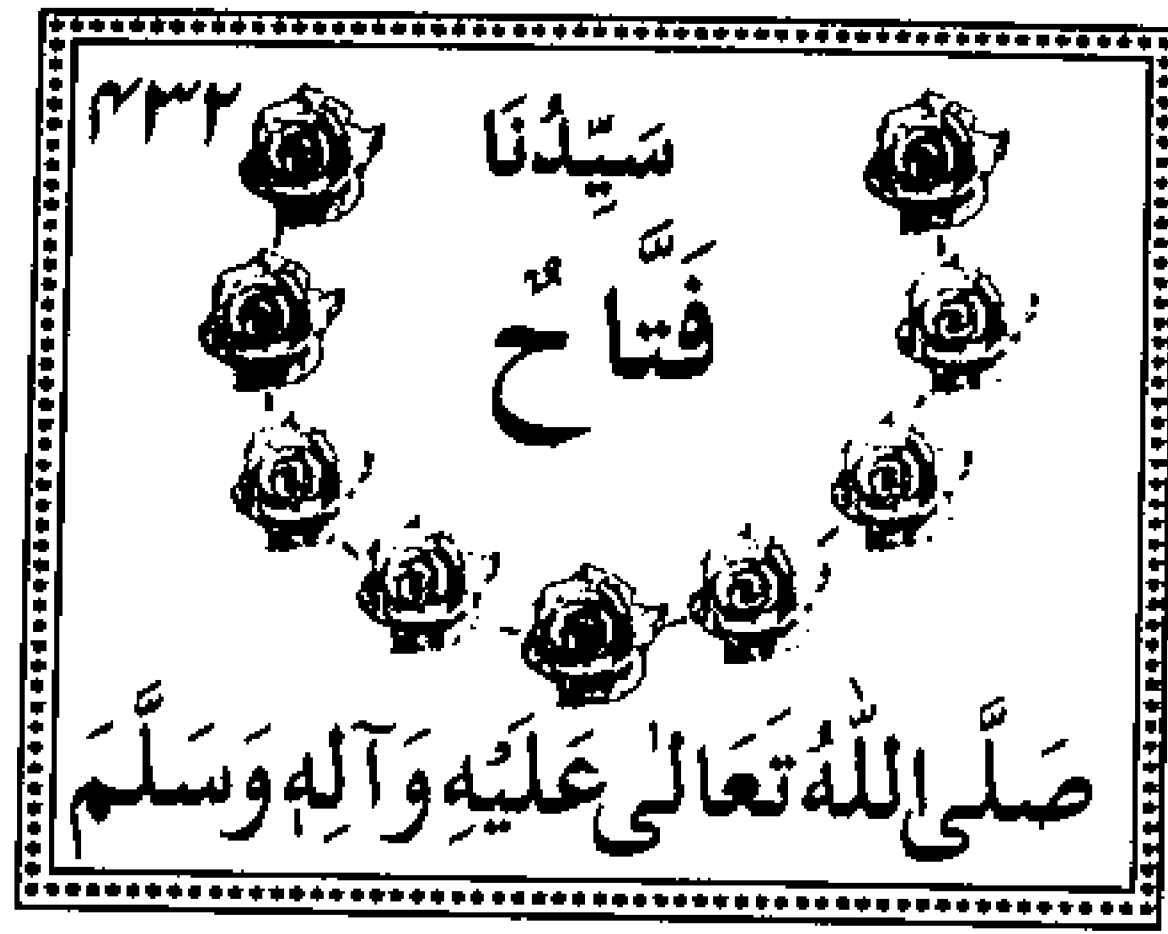 سَيِّدُنَا
فَتَّاحٌ
صَلَّى اللّٰهُ تَعَالٰى عَلَيْهِ وَآلِهٖ وَسَلَّمَ